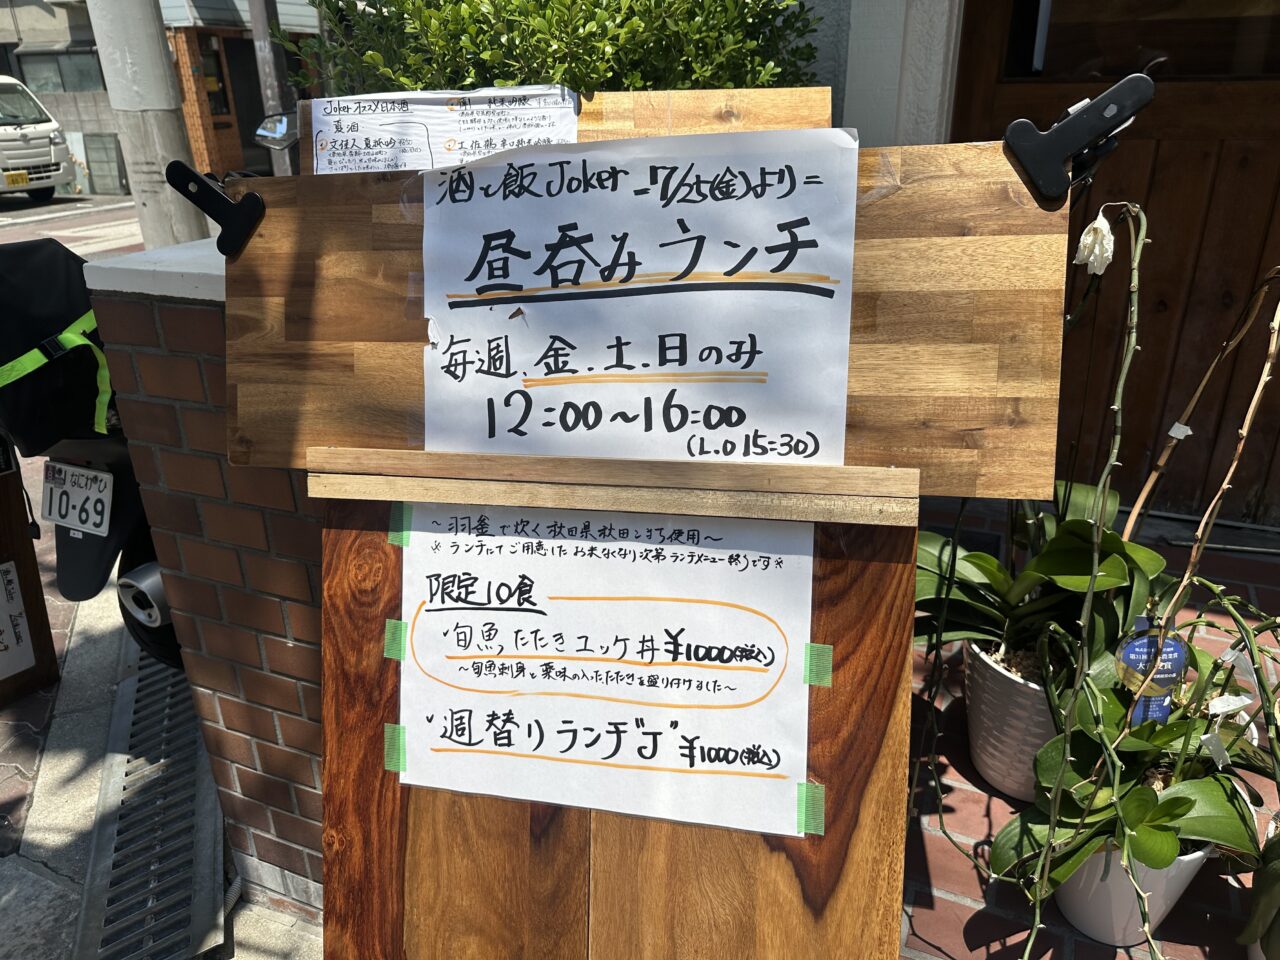 Joker オススメ日本酒
夏酒
文佳人 夏純吟
土佐鶴 辛口純米吟醸
酒と飯 Joker =7/25(金)より=
昼呑みランチ
毎週、金.土.日のみ
12:00~16:00
(L.O 15:30)
~羽釜で炊く秋田県秋田こまち使用~
※ランチにてご用意したお米なくなり次第ランチメニュー終了です※
限定10食
旬魚たたきユッケ丼 ¥1000(税込)
~旬魚刺身と薬味の入ったたたきを盛り付けました~
週替りランチ"J" ¥1000(税込)
なにわ ひ
10-69
大賞受賞